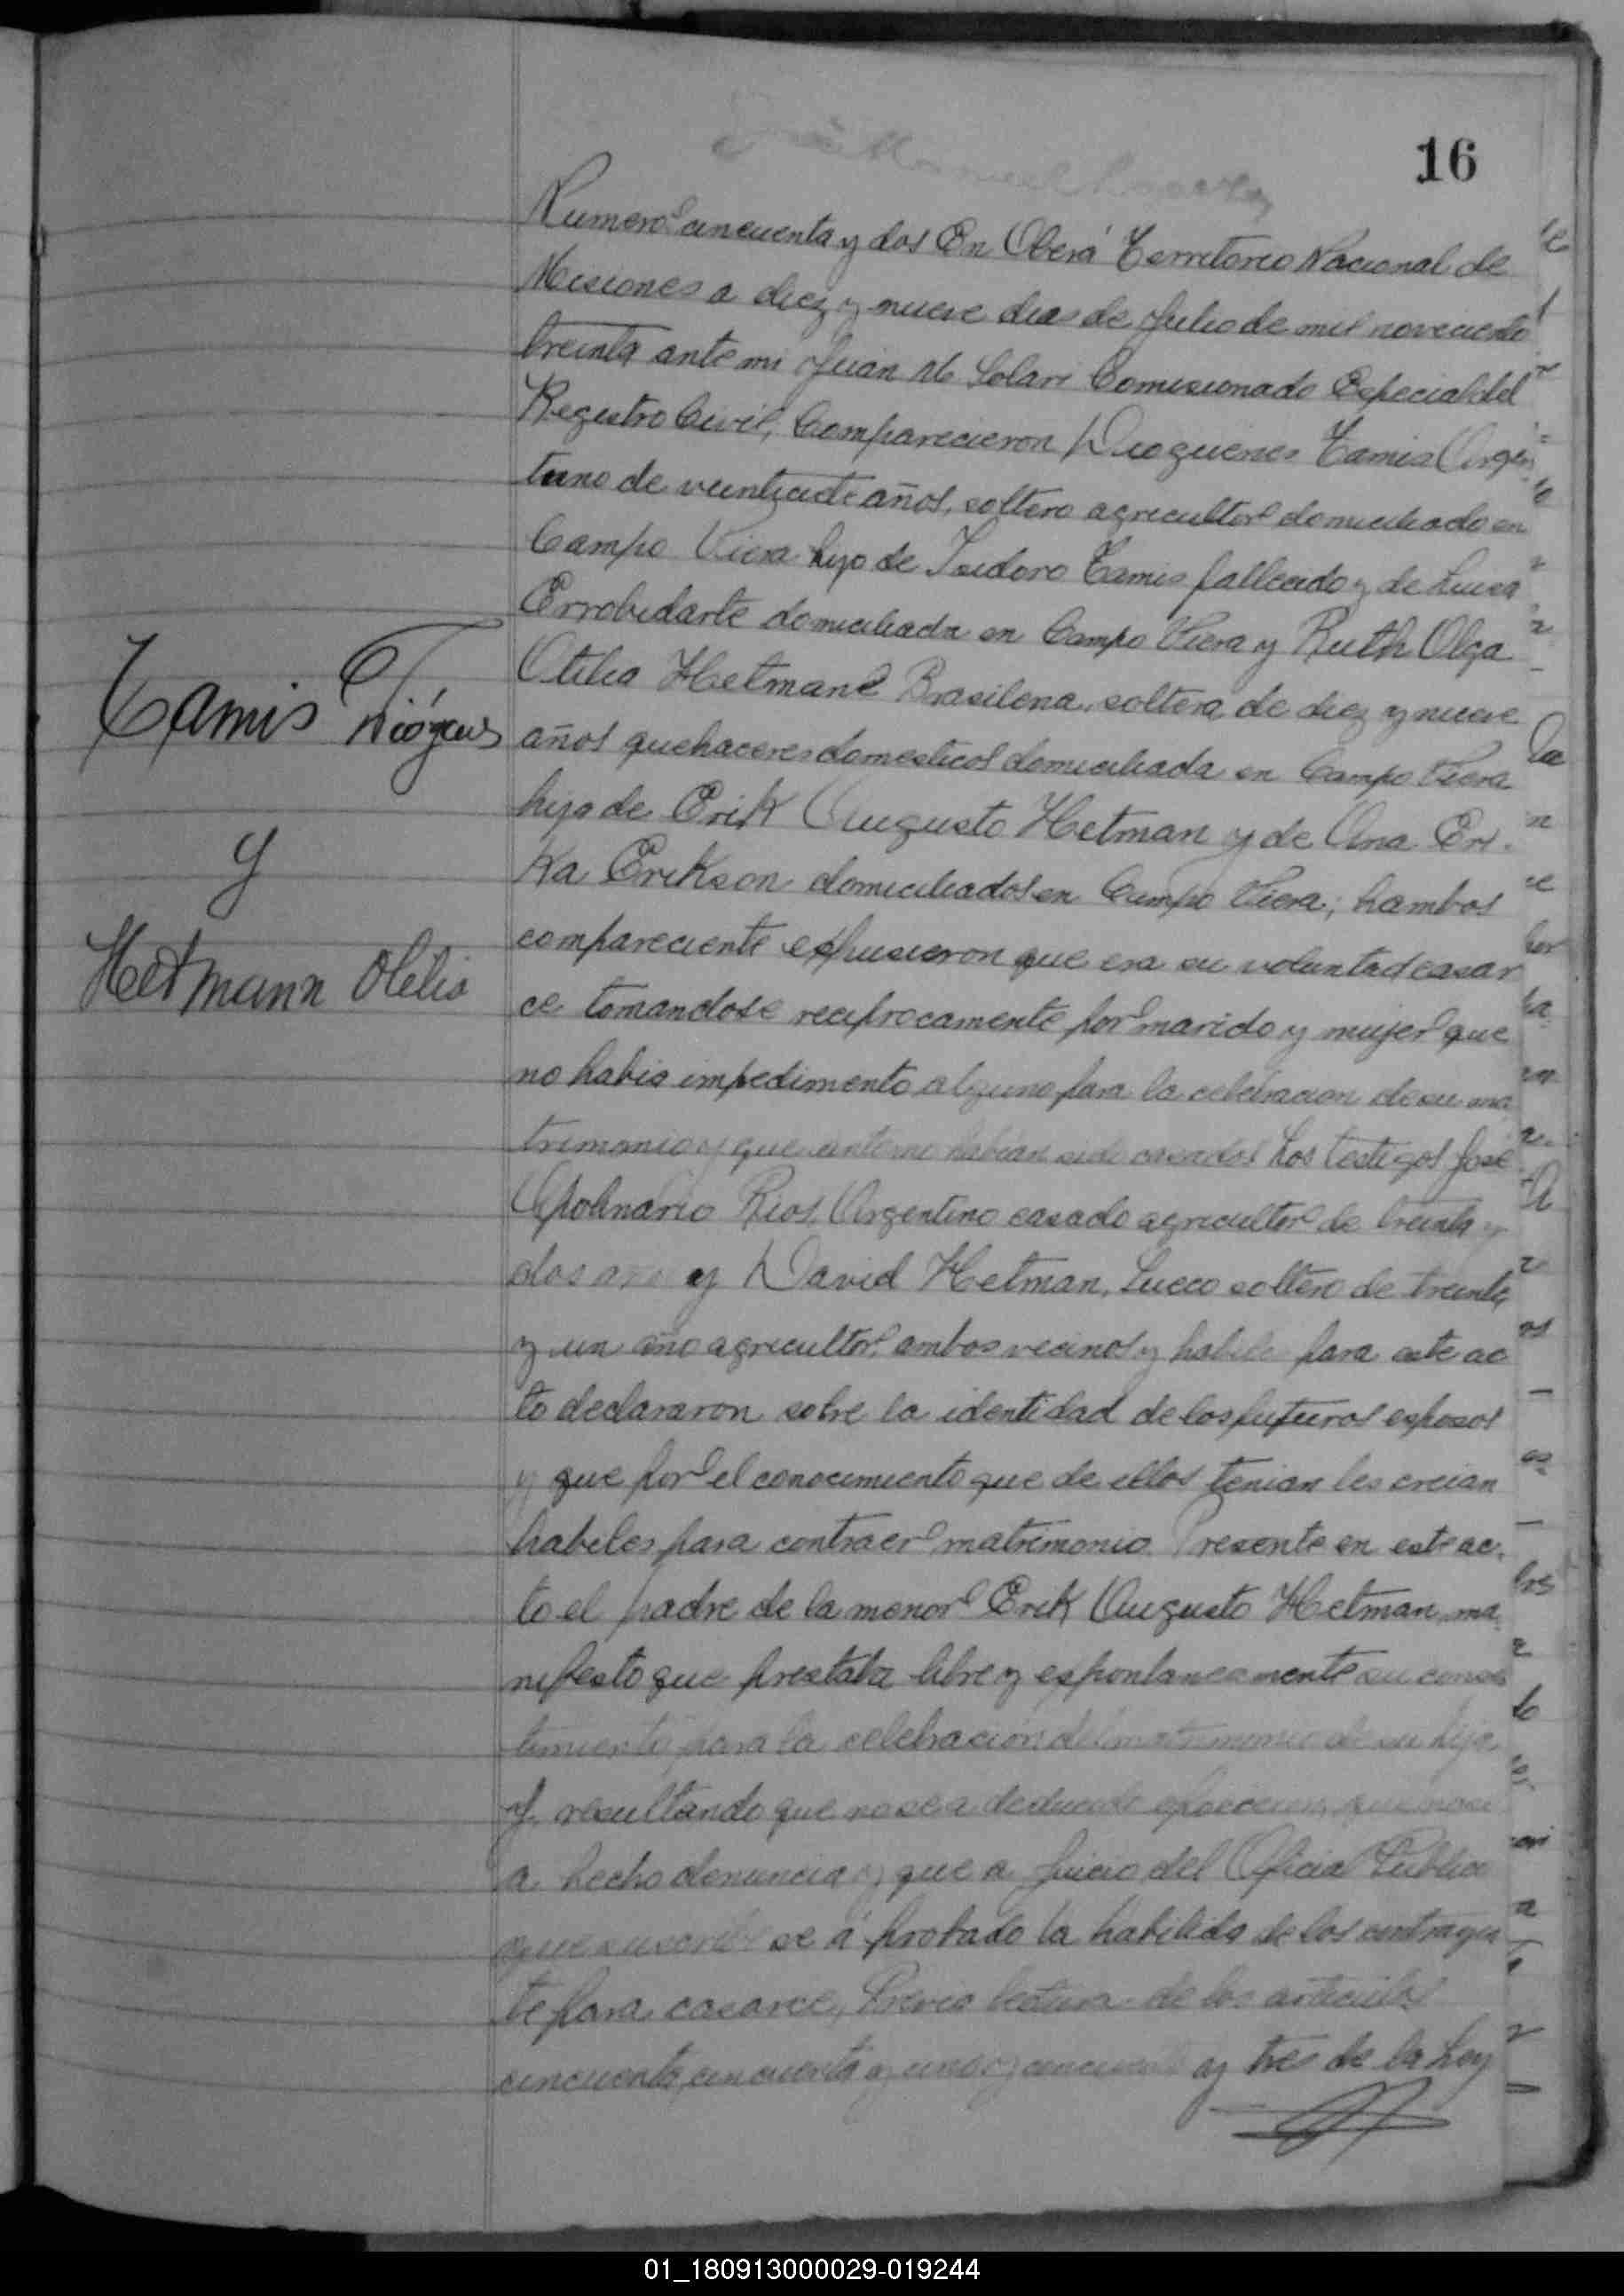 16
Numero cincuenta y dos En Oberá Territorio Nacional de
Misiones a diez y nueve dias de Julio de mil noveciento
treinta ante mi Juan M Solari Comisionado Especial del
Registro Civil, Comparecieron Dioguenes Tamis Argen
tino de veintisiete años, soltero agricultor domiciliado en
Campo Viera hijo de Isidoro Tamis fallecido y de Luisa
domiciliada en Campo Viera y Ruth Olga
Otilia Hetman Brasilena, soltera, de diez y nueve
años quehaceres domesticos domiciliada en Campo Viera
hija de Erik Augusto Hetman y de Ana Eri-
ka Erikson domiciliados en Campo Viera; hambos
compareciente espusieron que era su voluntad casar
ce tomandose reciprocamente por marido y mujer que
no habia impedimento alguno para la celebracion de su ma
trimonio y que habian sido casados Los testigos José
Apolinario Rios, Argentino casado agricultor de treinta y
dos y David Hetman, Sueco soltero de treinta
y un año agricultor, ambos vecinos y habiles para este ac
to declararon sobre la identidad de los futuros esposos
y que por el conocimiento que de ellos tenian les creian
habiles para contraer matrimonio. Presente en este ac-
to el padre de la menor Erik Augusto Hetman, ma-
nifesto que prestaba libre y espontaneamente su consen
timiento para la celebracion del matrimonio de su hija
Y resultando que no se a deducido oposicion, que no se
a hecho denuncia y que a juicio del Oficial Publico
que suscribe se á probado la habilida de los contrayen
te para casarce, Previa lectura de los articulos
cincuenta, cincuenta y uno y cincuenta y tres de la Ley
Tamis Diógenes
y
Hetmann Otilia
01_180913000029-019244